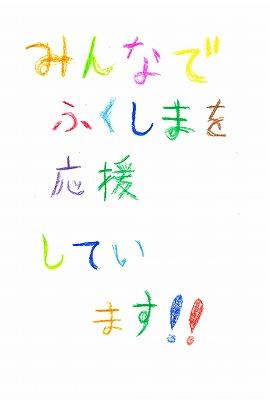 みんなで
ふくしまを
応援
してい
ます!!